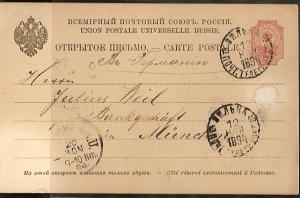 ВСЕМІРНЫЙ ПОЧТОВЫЙ СОЮЗЪ. РОССІЯ.
UNION POSTALE UNIVERSELLE. RUSSIE.
ОТКРЫТОЕ ПИСЬМО. — CARTE POSTALE.
Въ Германію
Herrn
Julius Weil
Bankgeschäft
in München
На этой сторонѣ пишется только адресъ. — Côté réservé exclusivement à l'adresse.